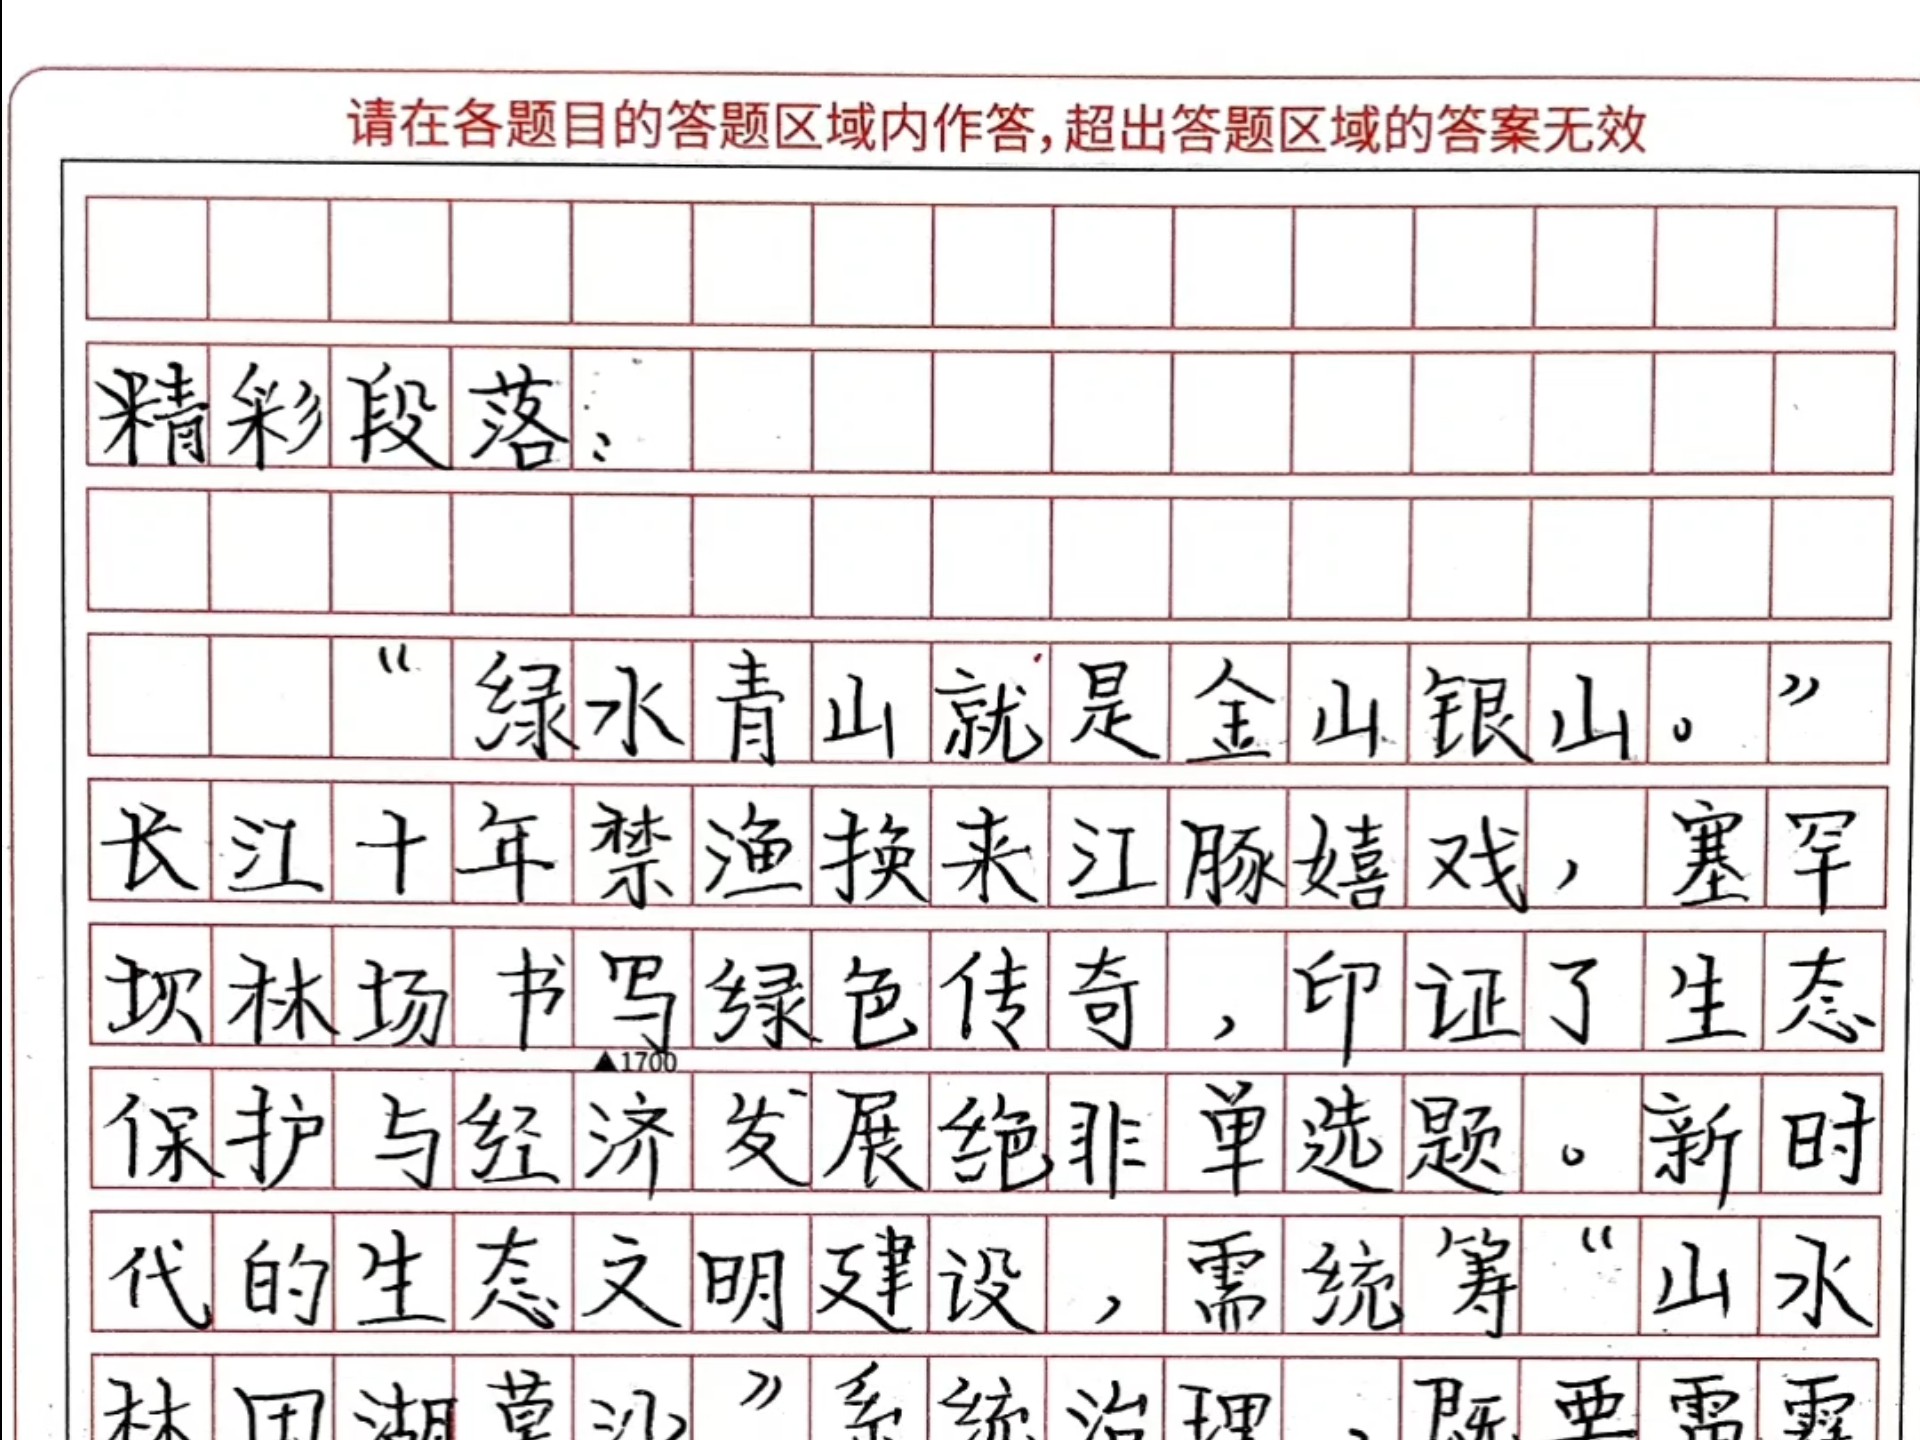 请在各题目的答题区域内作答,超出答题区域的答案无效
精彩段落：
“绿水青山就是金山银山。”
长江十年禁渔换来江豚嬉戏，塞罕
坝林场书写绿色传奇，印证了生态
▲1700
保护与经济发展绝非单选题。新时
代的生态文明建设，需统筹“山水
林田湖草沙”系统治理，既要需